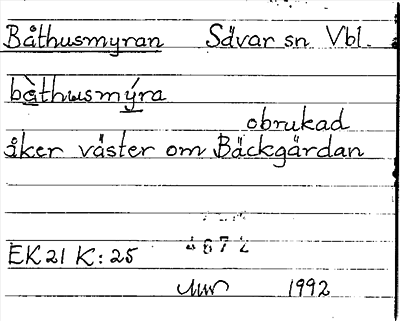 Båthusmyran Sävar sn Vbl.
bàthusmýra
obrukad
åker väster om Bäckgärdan
4672
EK21 K: 25
1992